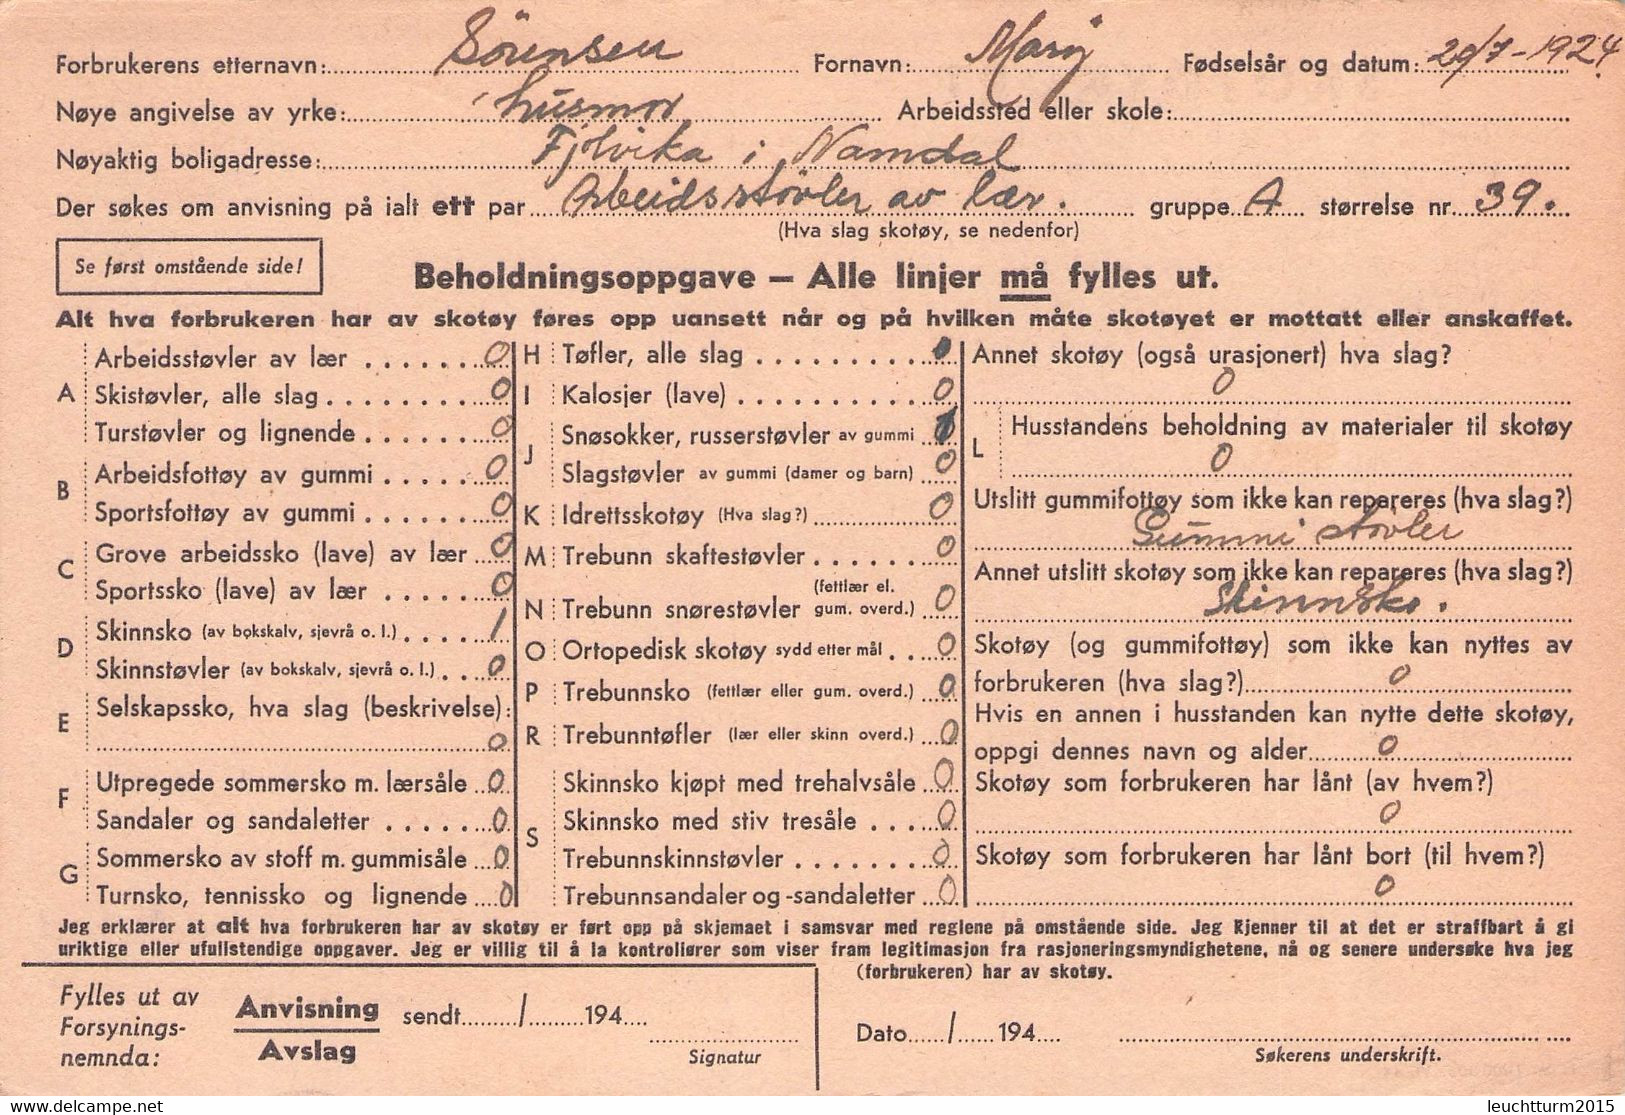 Forbrukerens etternavn: Sörensen Fornavn: Mary Fødselsår og datum: 29/7-1924.
Nøye angivelse av yrke: husmor Arbeidssted eller skole:
Nøyaktig boligadresse: Fjölvika i Namdal
Der søkes om anvisning på ialt ett par Arbeidsstövler av lær. gruppe A størrelse nr. 39.
(Hva slag skotøy, se nedenfor)
Se først omstående side!
Beholdningsoppgave — Alle linjer må fylles ut.
Alt hva forbrukeren har av skotøy føres opp uansett når og på hvilken måte skotøyet er mottatt eller anskaffet.
A
Arbeidsstøvler av lær 0
Skistøvler, alle slag 0
Turstøvler og lignende 0
B
Arbeidsfottøy av gummi 0
Sportsfottøy av gummi 0
C
Grove arbeidssko (lave) av lær 0
Sportssko (lave) av lær 0
D
Skinnsko (av bokskalv, sjevrå o. l.) 1
Skinnstøvler (av bokskalv, sjevrå o. l.) 0
E
Selskapssko, hva slag (beskrivelse):
0
F
Utpregede sommersko m. lærsåle 0
Sandaler og sandaletter 0
G
Sommersko av stoff m. gummisåle 0
Turnsko, tennissko og lignende 0
H Tøfler, alle slag
I Kalosjer (lave) 0
J
Snøsokker, russerstøvler av gummi 1
Slagstøvler av gummi (damer og barn) 0
K Idrettsskotøy (Hva slag?) 0
M Trebunn skaftestøvler 0
(fettlær el.
N Trebunn snørestøvler gum. overd.) 0
O Ortopedisk skotøy sydd etter mål 0
P Trebunnsko (fettlær eller gum. overd.) 0
R Trebunntøfler (lær eller skinn overd.) 0
S
Skinnsko kjøpt med trehalvsåle 0
Skinnsko med stiv tresåle 0
Trebunnskinnstøvler 0
Trebunnsandaler og -sandaletter 0
Annet skotøy (også urasjonert) hva slag?
0
L
Husstandens beholdning av materialer til skotøy
0
Utslitt gummifottøy som ikke kan repareres (hva slag?)
Gummi stövler
Annet utslitt skotøy som ikke kan repareres (hva slag?)
Skinnsko.
Skotøy (og gummifottøy) som ikke kan nyttes av
forbrukeren (hva slag?) 0
Hvis en annen i husstanden kan nytte dette skotøy,
oppgi dennes navn og alder 0
Skotøy som forbrukeren har lånt (av hvem?)
0
Skotøy som forbrukeren har lånt bort (til hvem?)
0
Jeg erklærer at alt hva forbrukeren har av skotøy er ført opp på skjemaet i samsvar med reglene på omstående side. Jeg kjenner til at det er straffbart å gi
uriktige eller ufullstendige oppgaver. Jeg er villig til å la kontrollører som viser fram legitimasjon fra rasjoneringsmyndighetene, nå og senere undersøke hva jeg
(forbrukeren) har av skotøy.
Fylles ut av
Forsynings-
nemnda:
Anvisning
Avslag
sendt / 194
Signatur
Dato / 194
Søkerens underskrift.
leuchtturm2015